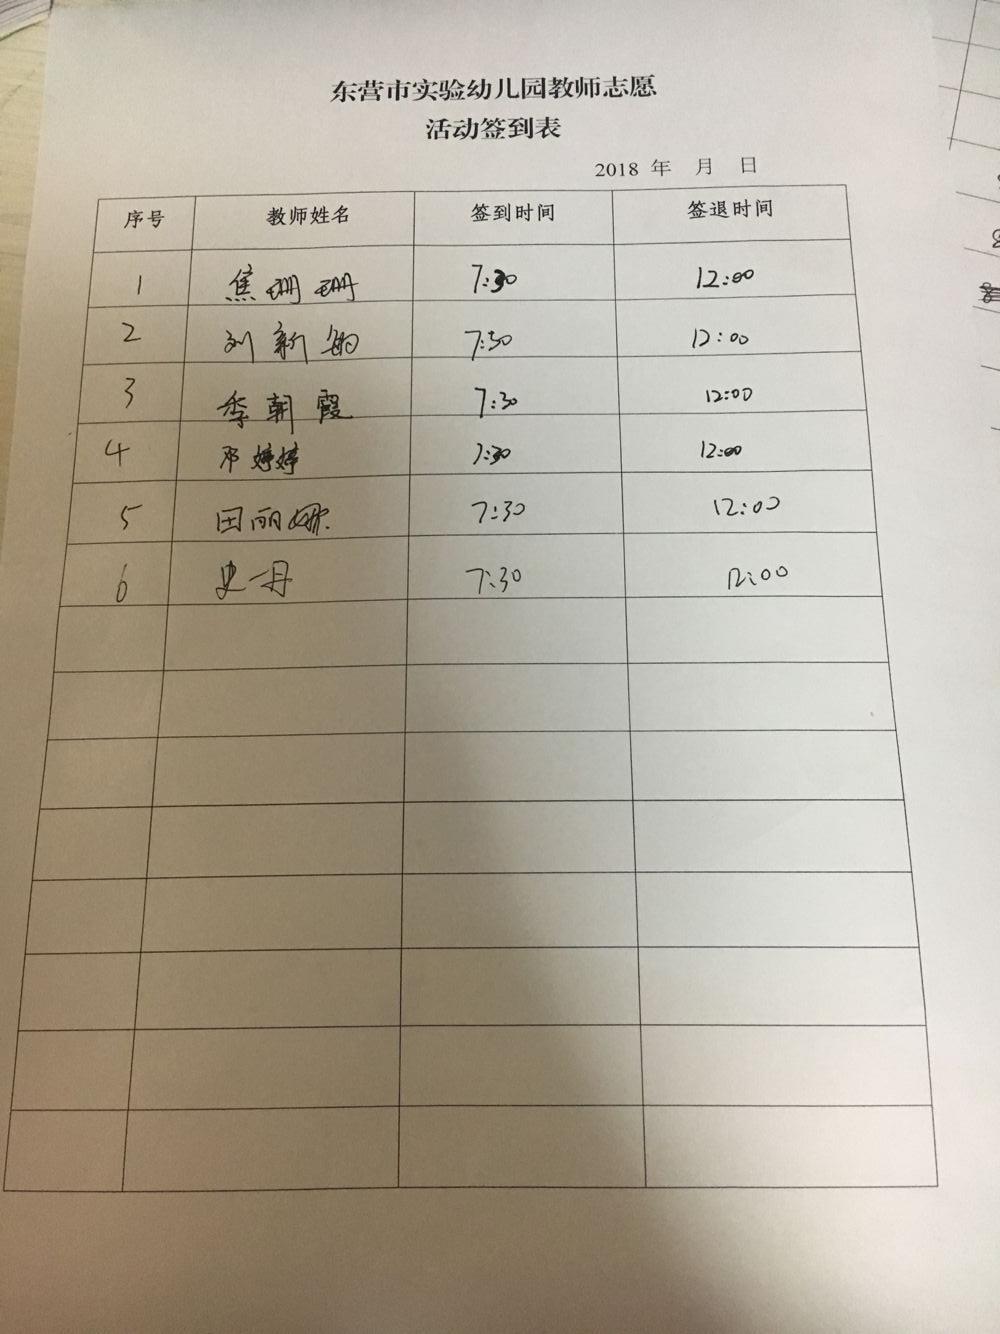 东营市实验幼儿园教师志愿
活动签到表
2018 年 月 日
序号 教师姓名 签到时间 签退时间
1 焦珊珊 7:30 12:00
2 刘新 7:30 12:00
3 季朝霞 7:30 12:00
4 邓婷婷 7:30 12:00
5 田丽娜 7:30 12:00
6 史一丹 7:30 12:00